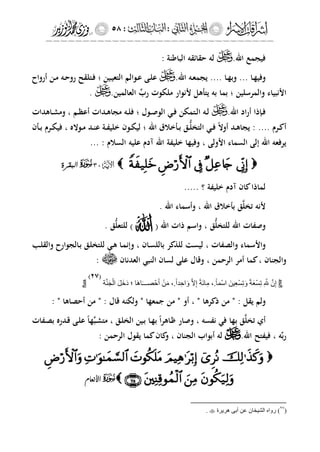 : ٥٨ :
فيجمع الله ﷻ له حقائقه الباطنة :
وفيها ... وبها .... يجمعه الله ﷻ على عوالم التعيين ؛ فتلقح روحه من أرواح
الأنبياء والمرسلين ؛ بما به يتأهل لأنوار ملكوت ربّ العالمين ﷻ .
فإذا أراد الله ﷻ له التمكن في الوصول ؛ فله مجاهدات أعظم ، ومشاهدات
أكرم : .... يجاهد أولاً في التخلّق بأخلاق الله ؛ ليكون خليفة عند مولاه ، فيكرم بأن
يرفعه الله إلى السماء الأولى ، وفيها خليفة الله آدم عليه السلام : ...
﴿ إِنِّي جَاعِلٌ فِي ٱلْأَرْضِ خَلِيفَةً ﴾ الآية ٣٠ البقرة
لماذا كان آدم خليفة ؟ .....
لأنه تخلّق بأخلاق الله ، وأسماء الله .
وصفات الله للتخلّق ، واسم ذات الله ( الله ) للتعلّق .
والأسماء والصفات ، ليست للذكر باللسان ، وإنما هي للتخلق بالجوارح والقلب
والجنان ، كما أمر الرحمن ، وقال على لسان النبي العدنان ﷺ :
﴿ إِنَّ لِلَّهِ تِسْعَةً وَتِسْعِينَ اسْماً. مِائَةً إِلاَّ وَاحِداً. مَنْ أَحْصَاهَا دَخَلَ الْجَنَّةَ ﴾ (٢٧)
ولم يقل : " من ذكرها " ، أو " من جمعها " ولكنه قال : " من أحصاها " :
أي تخلّق بها في نفسه ، وصار ظاهراً بها بين الخلق ، متشبِّهاً على قدره بصفات
ربّه ، فيفتح الله ﷻ له أبواب الجنان ، وكان كما يقول الرحمن :
﴿ وَكَذَٰلِكَ نُرِىٓ إِبْرَٰهِيمَ مَلَكُوتَ ٱلسَّمَٰوَٰتِ وَٱلْأَرْضِ
وَلِيَكُونَ مِنَ ٱلْمُوقِنِينَ ۝٧٥ ﴾ الأنعام
(٢٧) رواه الشيخان عن أبى هريرة .